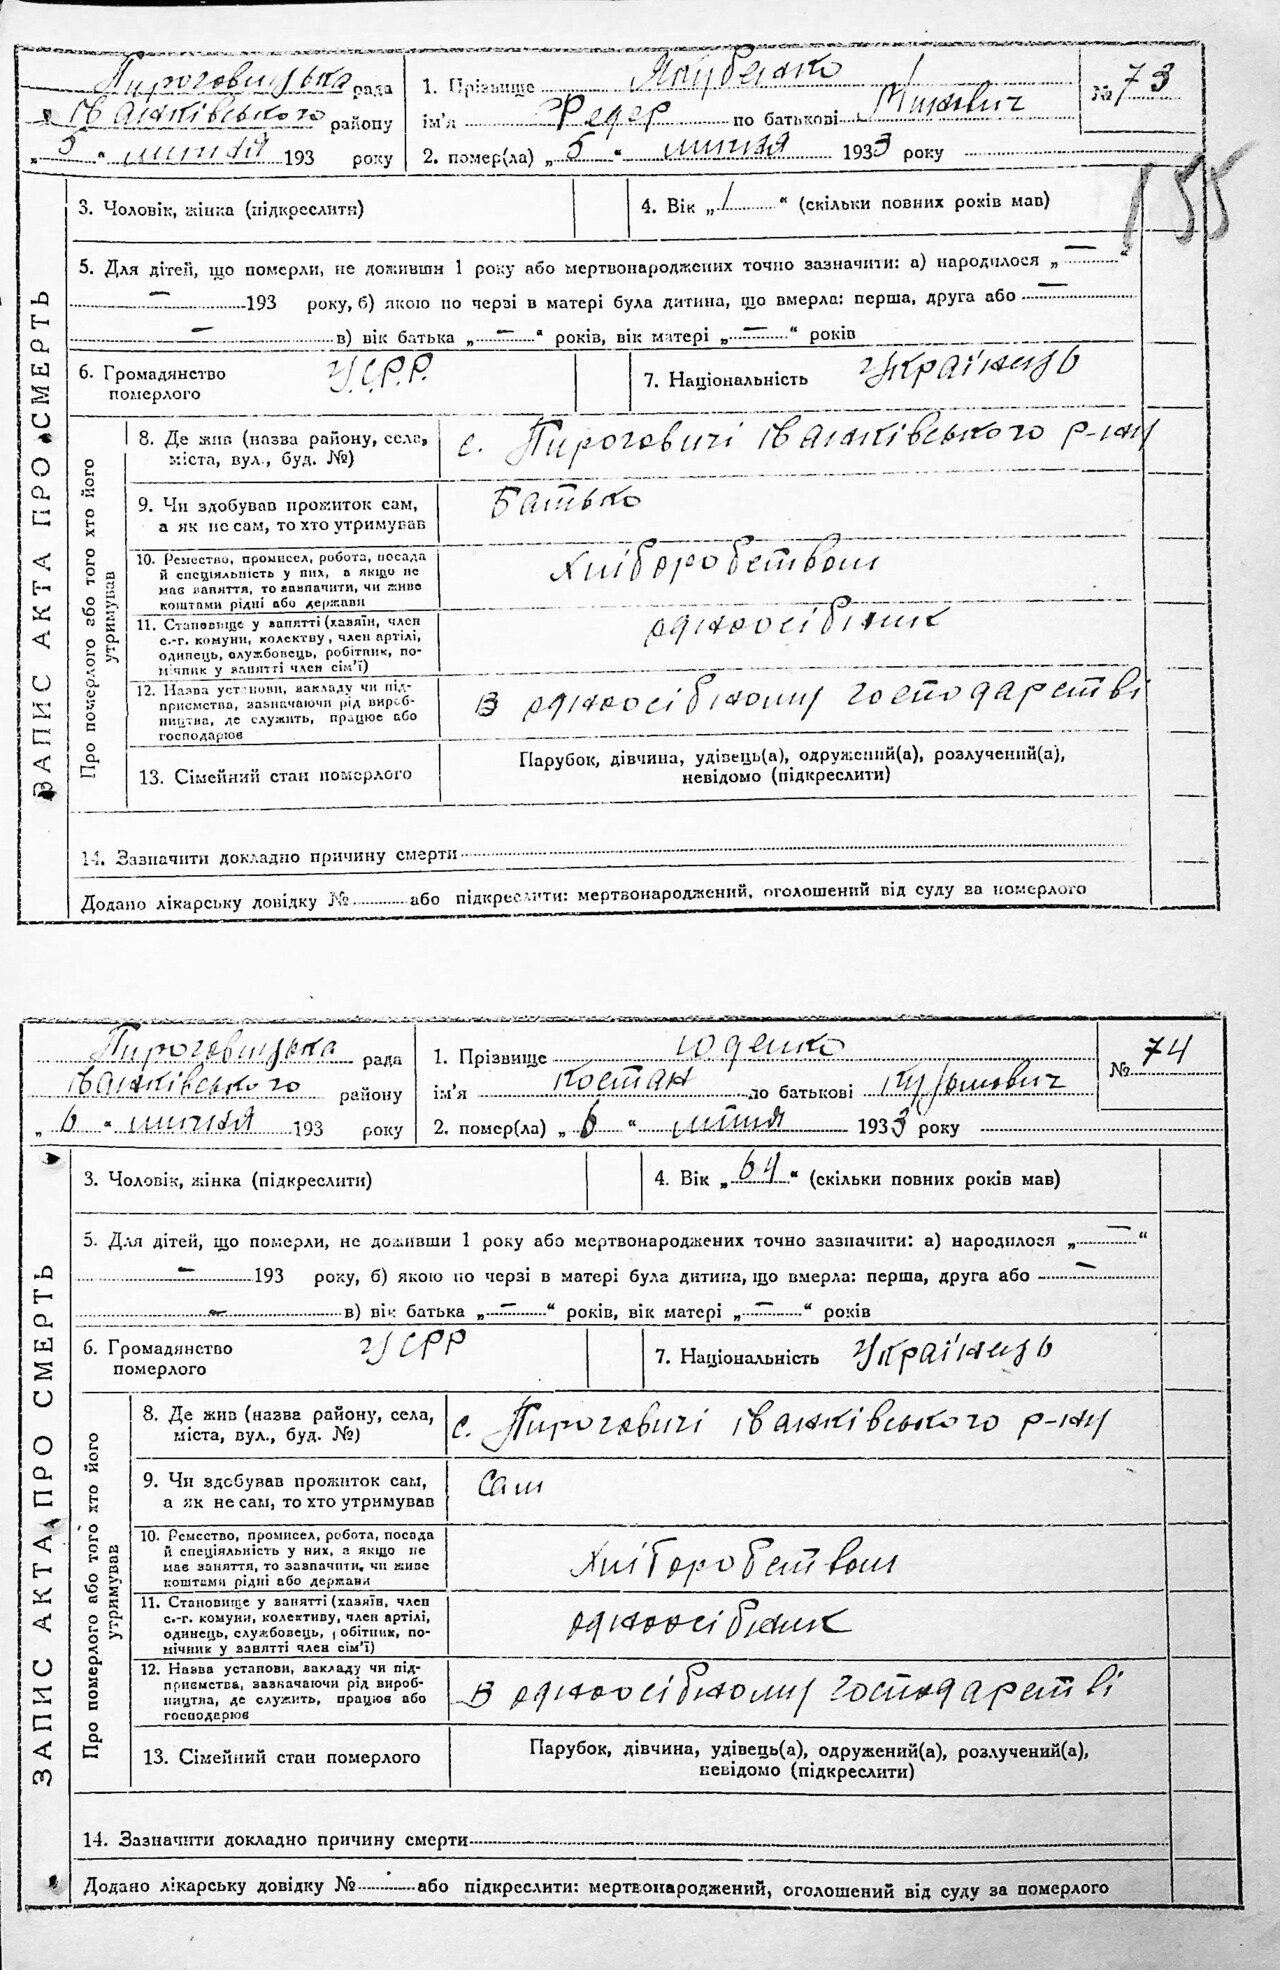 Пироговицька рада
Іванківського району
„ 5 “ липня 193 року
1. Прізвище Якубенко
ім'я Федер по батькові
2. помер(ла) „ 5 “ липня 1933 року
№ 73
155
ЗАПИС АКТА ПРО СМЕРТЬ
3. Чоловік, жінка (підкреслити)
4. Вік „ 1 “ (скільки повних років мав)
5. Для дітей, що померли, не доживши 1 року або мертвонароджених точно зазначити: а) народилося „ — “
— 193 року, б) якою по черзі в матері була дитина, що вмерла: перша, друга або —
— в) вік батька „ — “ років, вік матері „ — “ років
6. Громадянство
померлого
У.С.Р.Р.
7. Національність Українець
Про померлого або того хто його
утримував
8. Де жив (назва району, села,
міста, вул., буд. №)
с. Пироговичі Іванківського р-ну
9. Чи здобував прожиток сам,
а як не сам, то хто утримував
Батько
10. Ремество, промисел, робота, посада
й спеціяльність у них, а якщо не
має заняття, то зазначити, чи живе
коштами рідні або держави
Хліборобством
11. Становище у занятті (хазяїн, член
с.-г. комуни, колективу, член артілі,
одинець, службовець, робітник, по-
мічник у занятті член сім'ї)
одноосібник
12. Назва установи, закладу чи під-
приємства, зазначаючи рід вироб-
ництва, де служить, працює або
господарює
В одноосібному господарстві
13. Сімейний стан померлого
Парубок, дівчина, удівець(а), одружений(а), розлучений(а),
невідомо (підкреслити)
14. Зазначити докладно причину смерти
Додано лікарську довідку № або підкреслити: мертвонароджений, оголошений від суду за померлого
Пироговицька рада
Іванківського району
„ 6 “ липня 193 року
1. Прізвище Юденко
ім'я Костан по батькові Кузьмович
2. помер(ла) „ 6 “ липня 1933 року
№ 74
ЗАПИС АКТА ПРО СМЕРТЬ
3. Чоловік, жінка (підкреслити)
4. Вік „ 64 “ (скільки повних років мав)
5. Для дітей, що померли, не доживши 1 року або мертвонароджених точно зазначити: а) народилося „ — “
— 193 року, б) якою по черзі в матері була дитина, що вмерла: перша, друга або —
— в) вік батька „ — “ років, вік матері „ — “ років
6. Громадянство
померлого
УСРР
7. Національність Українець
Про померлого або того хто його
утримував
8. Де жив (назва району, села,
міста, вул., буд. №)
с. Пироговичі Іванківського р-ну
9. Чи здобував прожиток сам,
а як не сам, то хто утримував
Сам
10. Ремество, промисел, робота, посада
й спеціяльність у них, а якщо не
має заняття, то зазначити, чи живе
коштами рідні або держави
Хліборобством
11. Становище у занятті (хазяїн, член
с.-г. комуни, колективу, член артілі,
одинець, службовець, робітник, по-
мічник у занятті член сім'ї)
одноосібник
12. Назва установи, закладу чи під-
приємства, зазначаючи рід вироб-
ництва, де служить, працює або
господарює
В одноосібному господарстві
13. Сімейний стан померлого
Парубок, дівчина, удівець(а), одружений(а), розлучений(а),
невідомо (підкреслити)
14. Зазначити докладно причину смерти
Додано лікарську довідку № або підкреслити: мертвонароджений, оголошений від суду за померлого